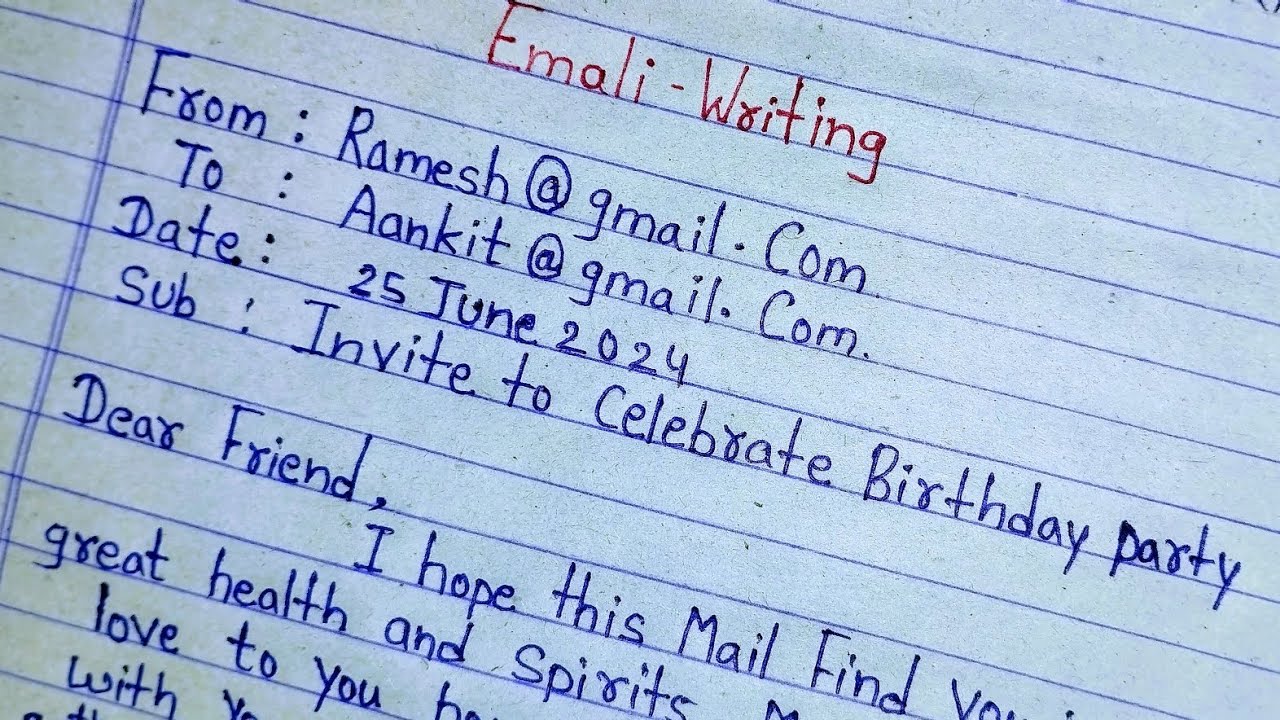 Emali - Writing
From : Ramesh@gmail. Com
To : Aankit@gmail. Com.
Date : 25 June 2024
Sub : Invite to Celebrate Birthday party
Dear Friend,
I hope this Mail Find
great health and Spirits
love to you
with